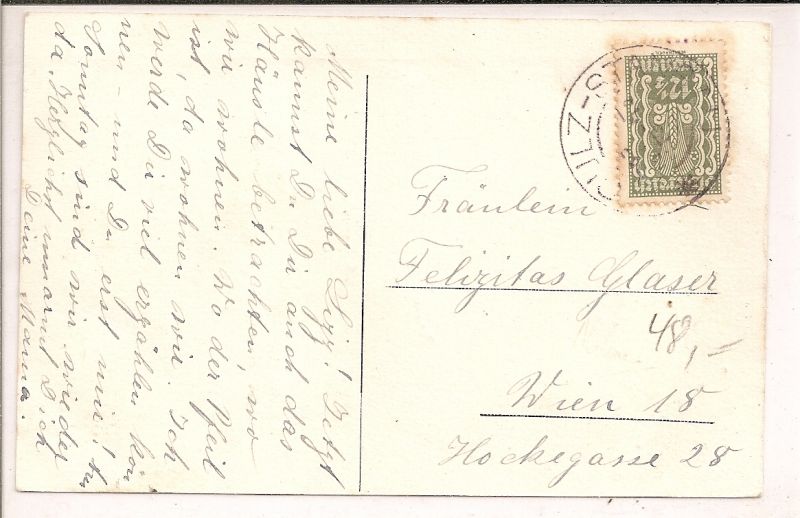 Meine liebe Lizi! Jetzt
kannst Du Du auch das
Häusle betrachten, wo
wir wohnen. Wo der Pfeil
ist, da wohnen wir. Ich
werde Dir viel erzählen kön
nen – und Du erst mir! Am
Sonntag sind wir wieder
da. Herzlichst umarmt Dich
Deine Mama.
Fräulein
Felizitas Glaser
48,-
Wien 18
Hockegasse 28
SULZ-ST
12½